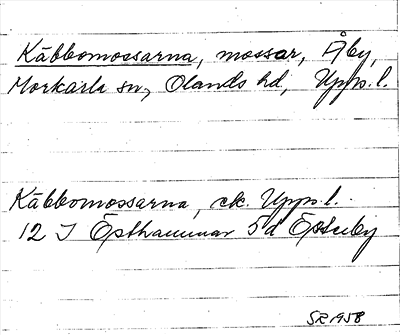 Käbbomossarna, mossar, Åby,
Morkarla sn, Olands hd, Upps. l.
Käbbomossarna, ek. Upps. l.
12 I Östhammar 5d Österby
SR 1958